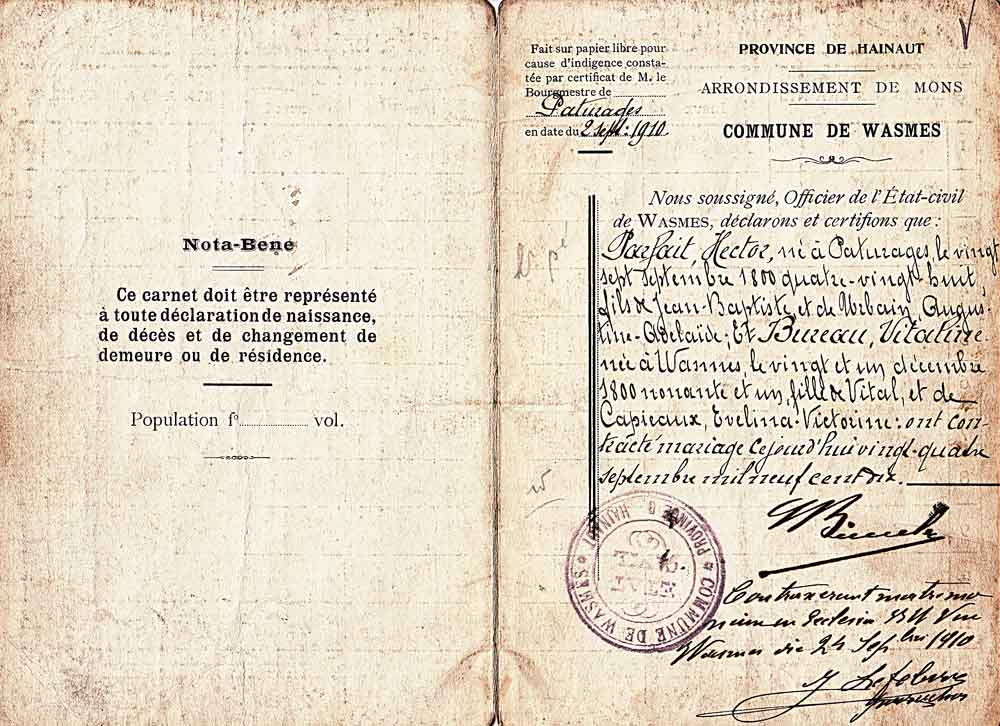 Nota-Bene
Ce carnet doit être représenté
à toute déclaration de naissance,
de décès et de changement de
demeure ou de résidence.
Population fº vol.
Fait sur papier libre pour
cause d'indigence consta-
tée par certificat de M. le
Bourgmestre de
Paturages
en date du 2 Sept: 1910
PROVINCE DE HAINAUT
ARRONDISSEMENT DE MONS
COMMUNE DE WASMES
Nous soussigné, Officier de l'État-civil
de WASMES, déclarons et certifions que :
Parfait, Hector, né à Paturages, le vingt
sept Septembre 1800 quatre-vingt huit,
fils de Jean-Baptiste, et de Urbain, Augus-
tine-Adelaide; Et Bureau, Vitaline
née à Wasmes, le vingt et un décembre
1800 nonante et un, fille de Vital, et de
Capieaux, Evelina-Victorine: ont con-
tracté mariage cejourd'hui vingt-quatre
septembre mil neuf cent dix.
COMMUNE DE WASMES * PROVINCE D HAINAUT *
ETAT
Contraxerunt matrimo
nium in Ecclesia
Wasmes die 24 Sepbris 1910
J Lefebvre